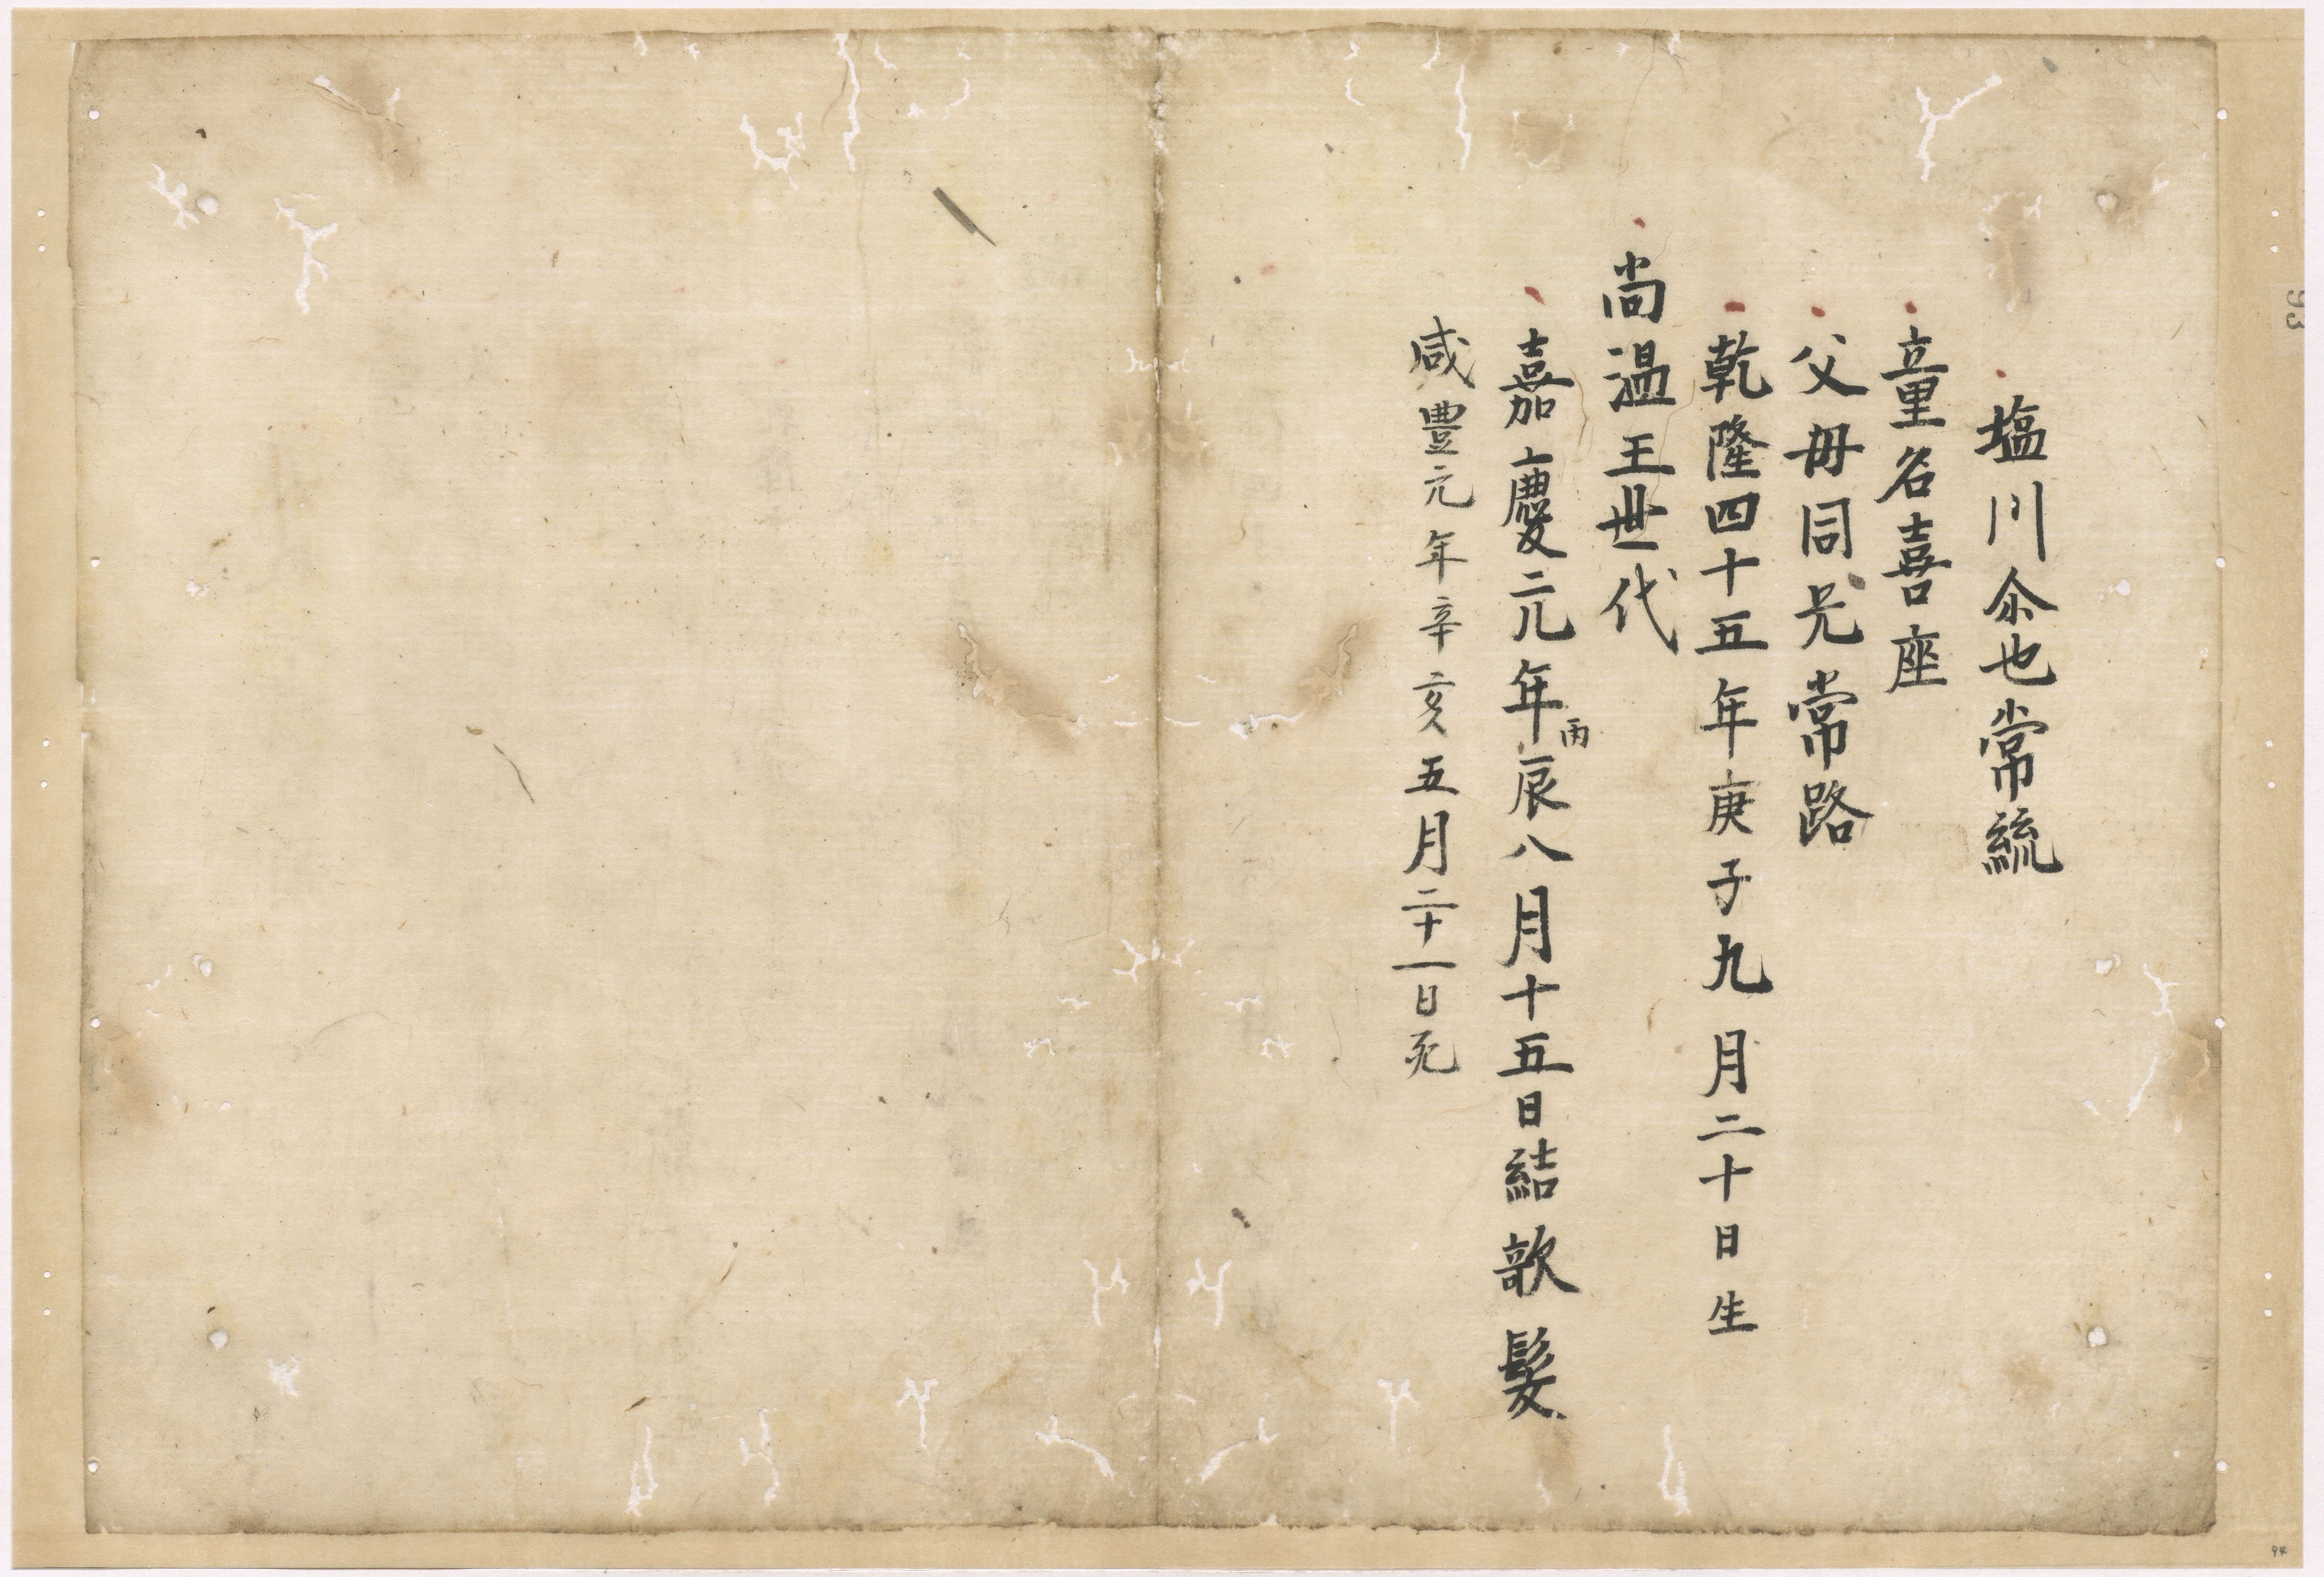 塩川尒也常統
童名喜座
父母同兄常路
乾隆四十五年庚子九月二十日生
尚温王世代
嘉慶元年丙辰八月十五日結欹髮
咸豐元年辛亥五月二十一日死
93
94